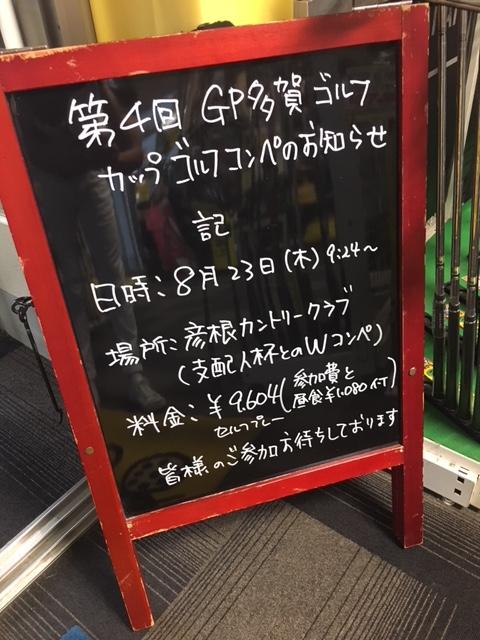 第4回 GP多賀ゴルフ
カップゴルフコンペのお知らせ
記
日時：8月23日(木) 9:24〜
場所：彦根カントリークラブ
(支配人杯とのWコンペ)
料金：¥9.604(参加費と
昼食¥1,080付)
セルフプレー
皆様のご参加お待ちしております